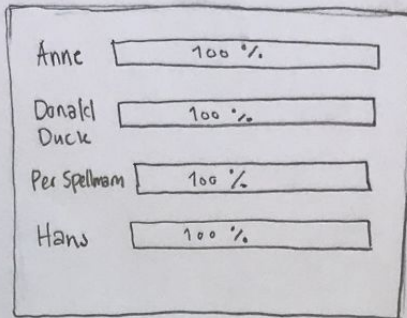 Anne 100 %
Donald 100 %
Duck
Per Spellmam 100 %
Hans 100 %